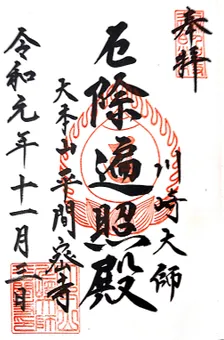 奉拝
川崎大師
厄除遍照殿
大本山平間寺
令和元年十一月三日